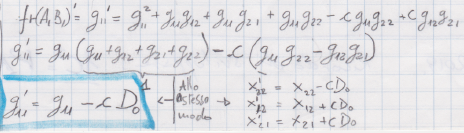 fr(A₁B₁)' = g₁₁' = g₁₁² + g₁₁g₁₂ + g₁₁g₂₁ + g₁₁g₂₂ - c g₁₁g₂₂ + c g₁₂g₂₁
g₁₁' = g₁₁(g₁₁ + g₁₂ + g₂₁ + g₂₂) - c(g₁₁g₂₂ - g₁₂g₂₁)
1
g₁₁' = g₁₁ - c D₀ ← Allo stesso modo →
x₂₂' = x₂₂ - cD₀
x₁₂' = x₁₂ + cD₀
x₂₁' = x₂₁ + cD₀